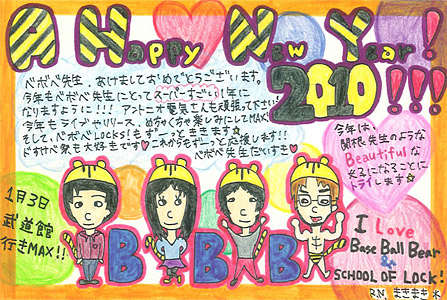 A Happy New Year!
2010!!!
ベボベ先生、あけましておめでとうございます。
今年もベボベ先生にとってスーパーすごい1年に
なりますように!!! アントニオ電気さんも頑張って下さい
今年もライブやリリース、めちゃくちゃ楽しみにしてMAX!
そして、ベボベLOCKS!もずーっとききます☆
どすけべ祭も大好きです♡これからもずーっと応援します!!
ベボベ先生だいすき♡
今年は
関根先生のような
Beautifulな
女子になることに
トライします☆
1月3日
武道館
行きMAX!!
BBB
I Love
Base Ball Bear
&
SCHOOL OF LOCK!
RN まきまき